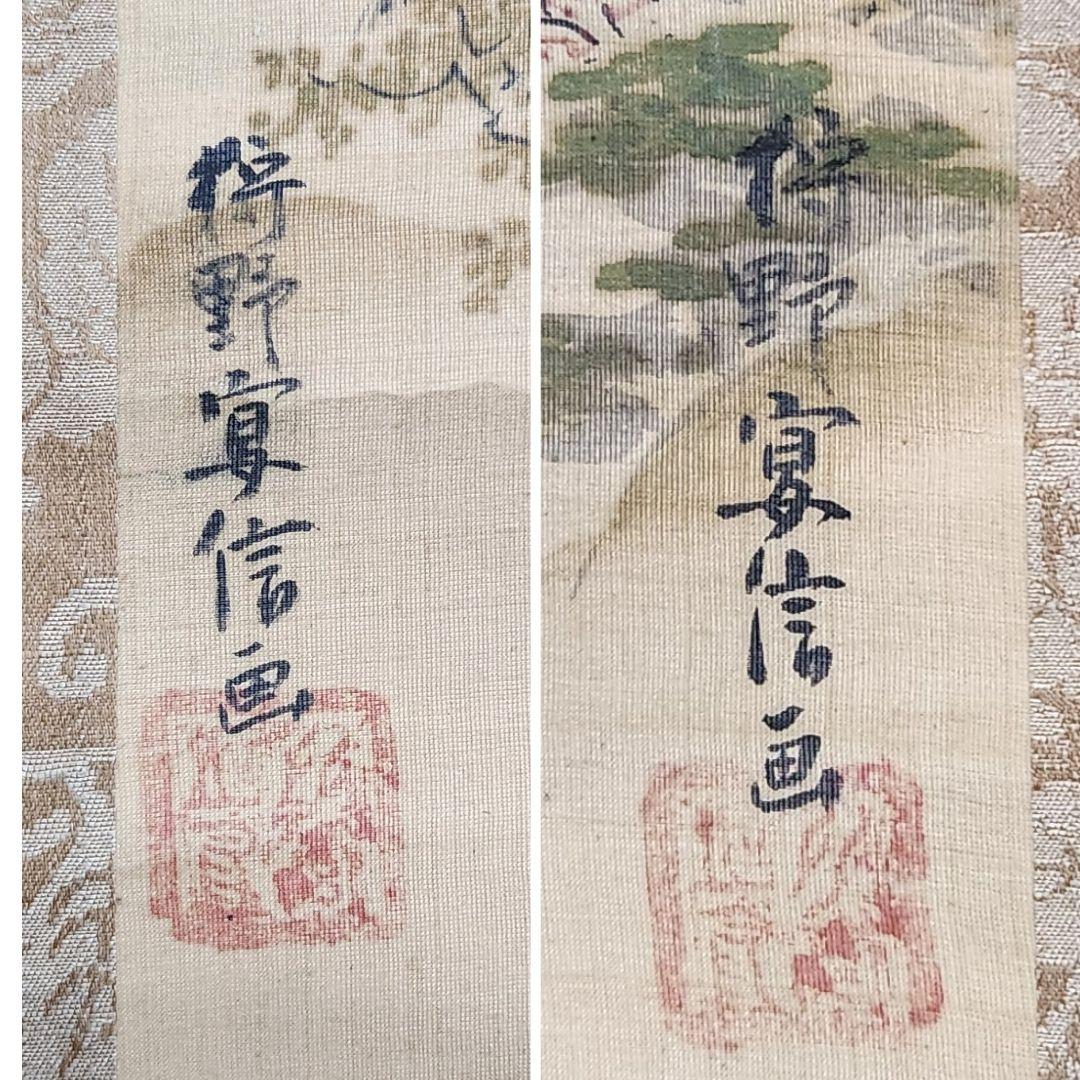 狩野宴信画
狩野宴信画